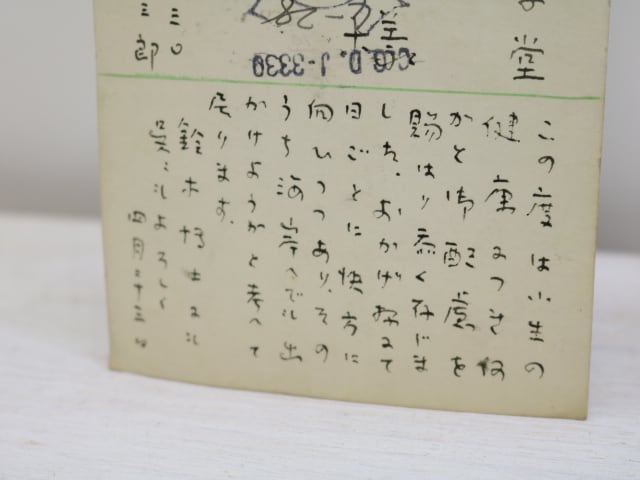 堂
三〇
三郎
C.C.D. J-3330
この度は小生の
健康につき何
かと御配慮を
賜はり忝く存じま
した。おかげ様にて
日ごとに快方に
向ひつつあり、その
うち海岸へでも出
かけようかと考へて
居ります。
鈴木博士にも
呉〻もよろしく
四月二十三日